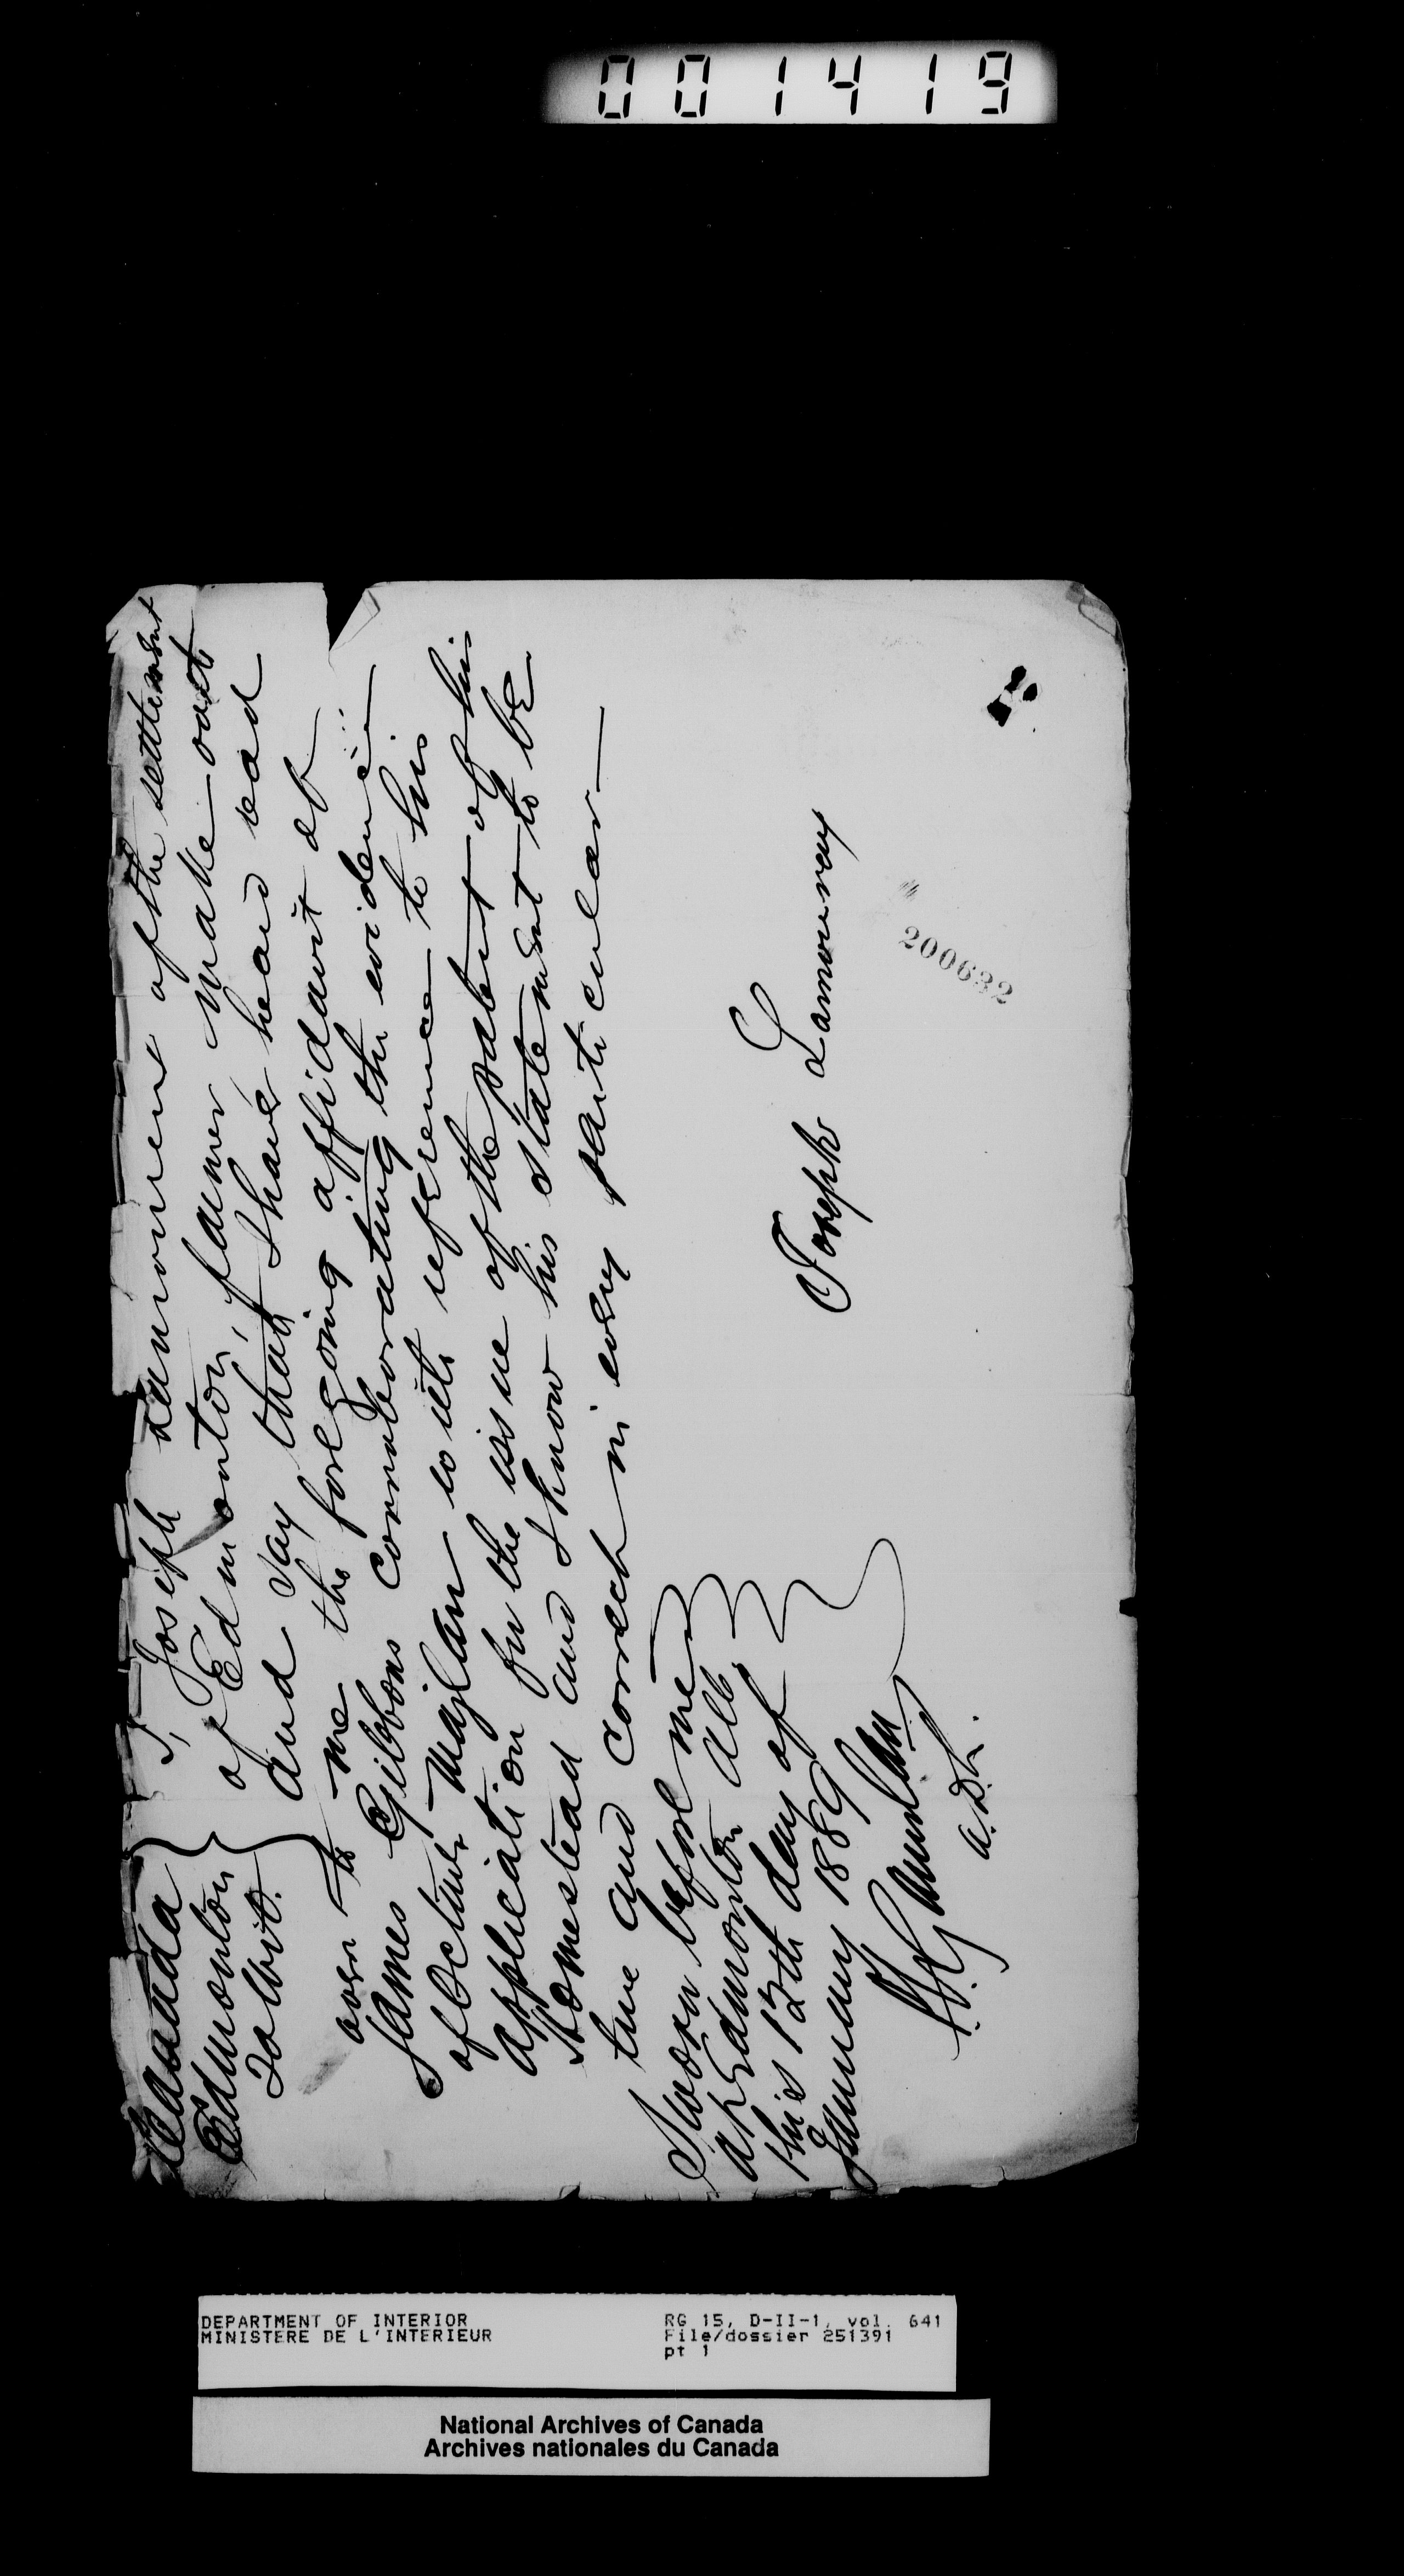 001419
Canada
Edmonton
To Wit.
I, Joseph Lamoureux of the settlement
of Edmonton, farmer make oath
and say that I have heard read
over to me the foregoing affidavit of
James Gibbons corroborating the evidence
of Octave Majeau with reference to his
application for the issue of the patent of his
Homestead and I know his statement to be
true and correct in every particular—
Sworn before me
at Edmonton Alb
this 12th day of
January 1889
A.D.L.
Joseph Lamouray
200632
DEPARTMENT OF INTERIOR
MINISTERE DE L'INTERIEUR
RG 15, D-II-1, vol. 641
File/dossier 251391
pt 1
National Archives of Canada
Archives nationales du Canada